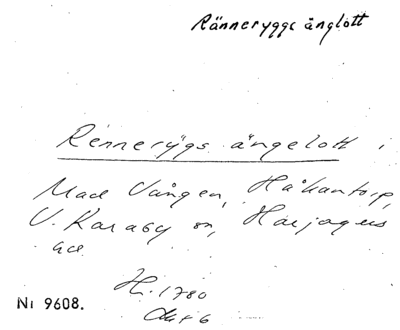 Ränneryggs änglott
Rennerÿgs ängelott i
Mad Vången, Håkantorp,
V. Karaby sn, Harjagers
hd
H. 1780
Akt 6
Nı 9608.